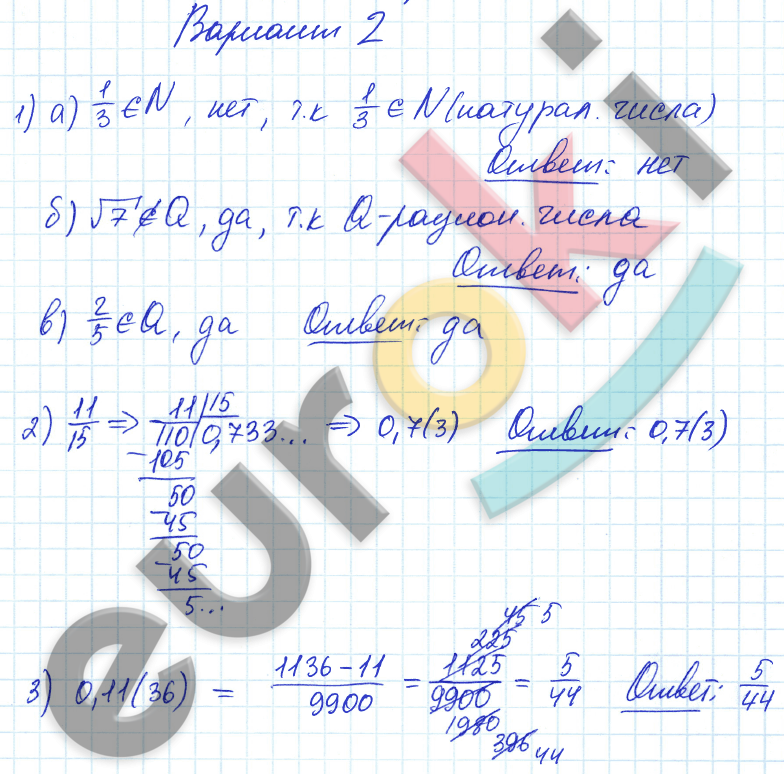 Вариант 2
1) а) 1/3 ∈ N, нет, т.к 1/3 ∈ N (натурал. числа)
Ответ: нет
б) √7 ∉ Q, да, т.к Q - рацион. числа
Ответ: да
в) 2/5 ∈ Q, да Ответ: да
2) 11/15 => 11 | 15 => 0,7(3) Ответ: 0,7(3)
110 | 0,733...
- 105
50
- 45
50
- 45
5...
3) 0,11(36) = (1136 - 11)/9900 = 1125/9900 = 5/44 Ответ: 5/44
225 45 5
1980 396 44
euroki